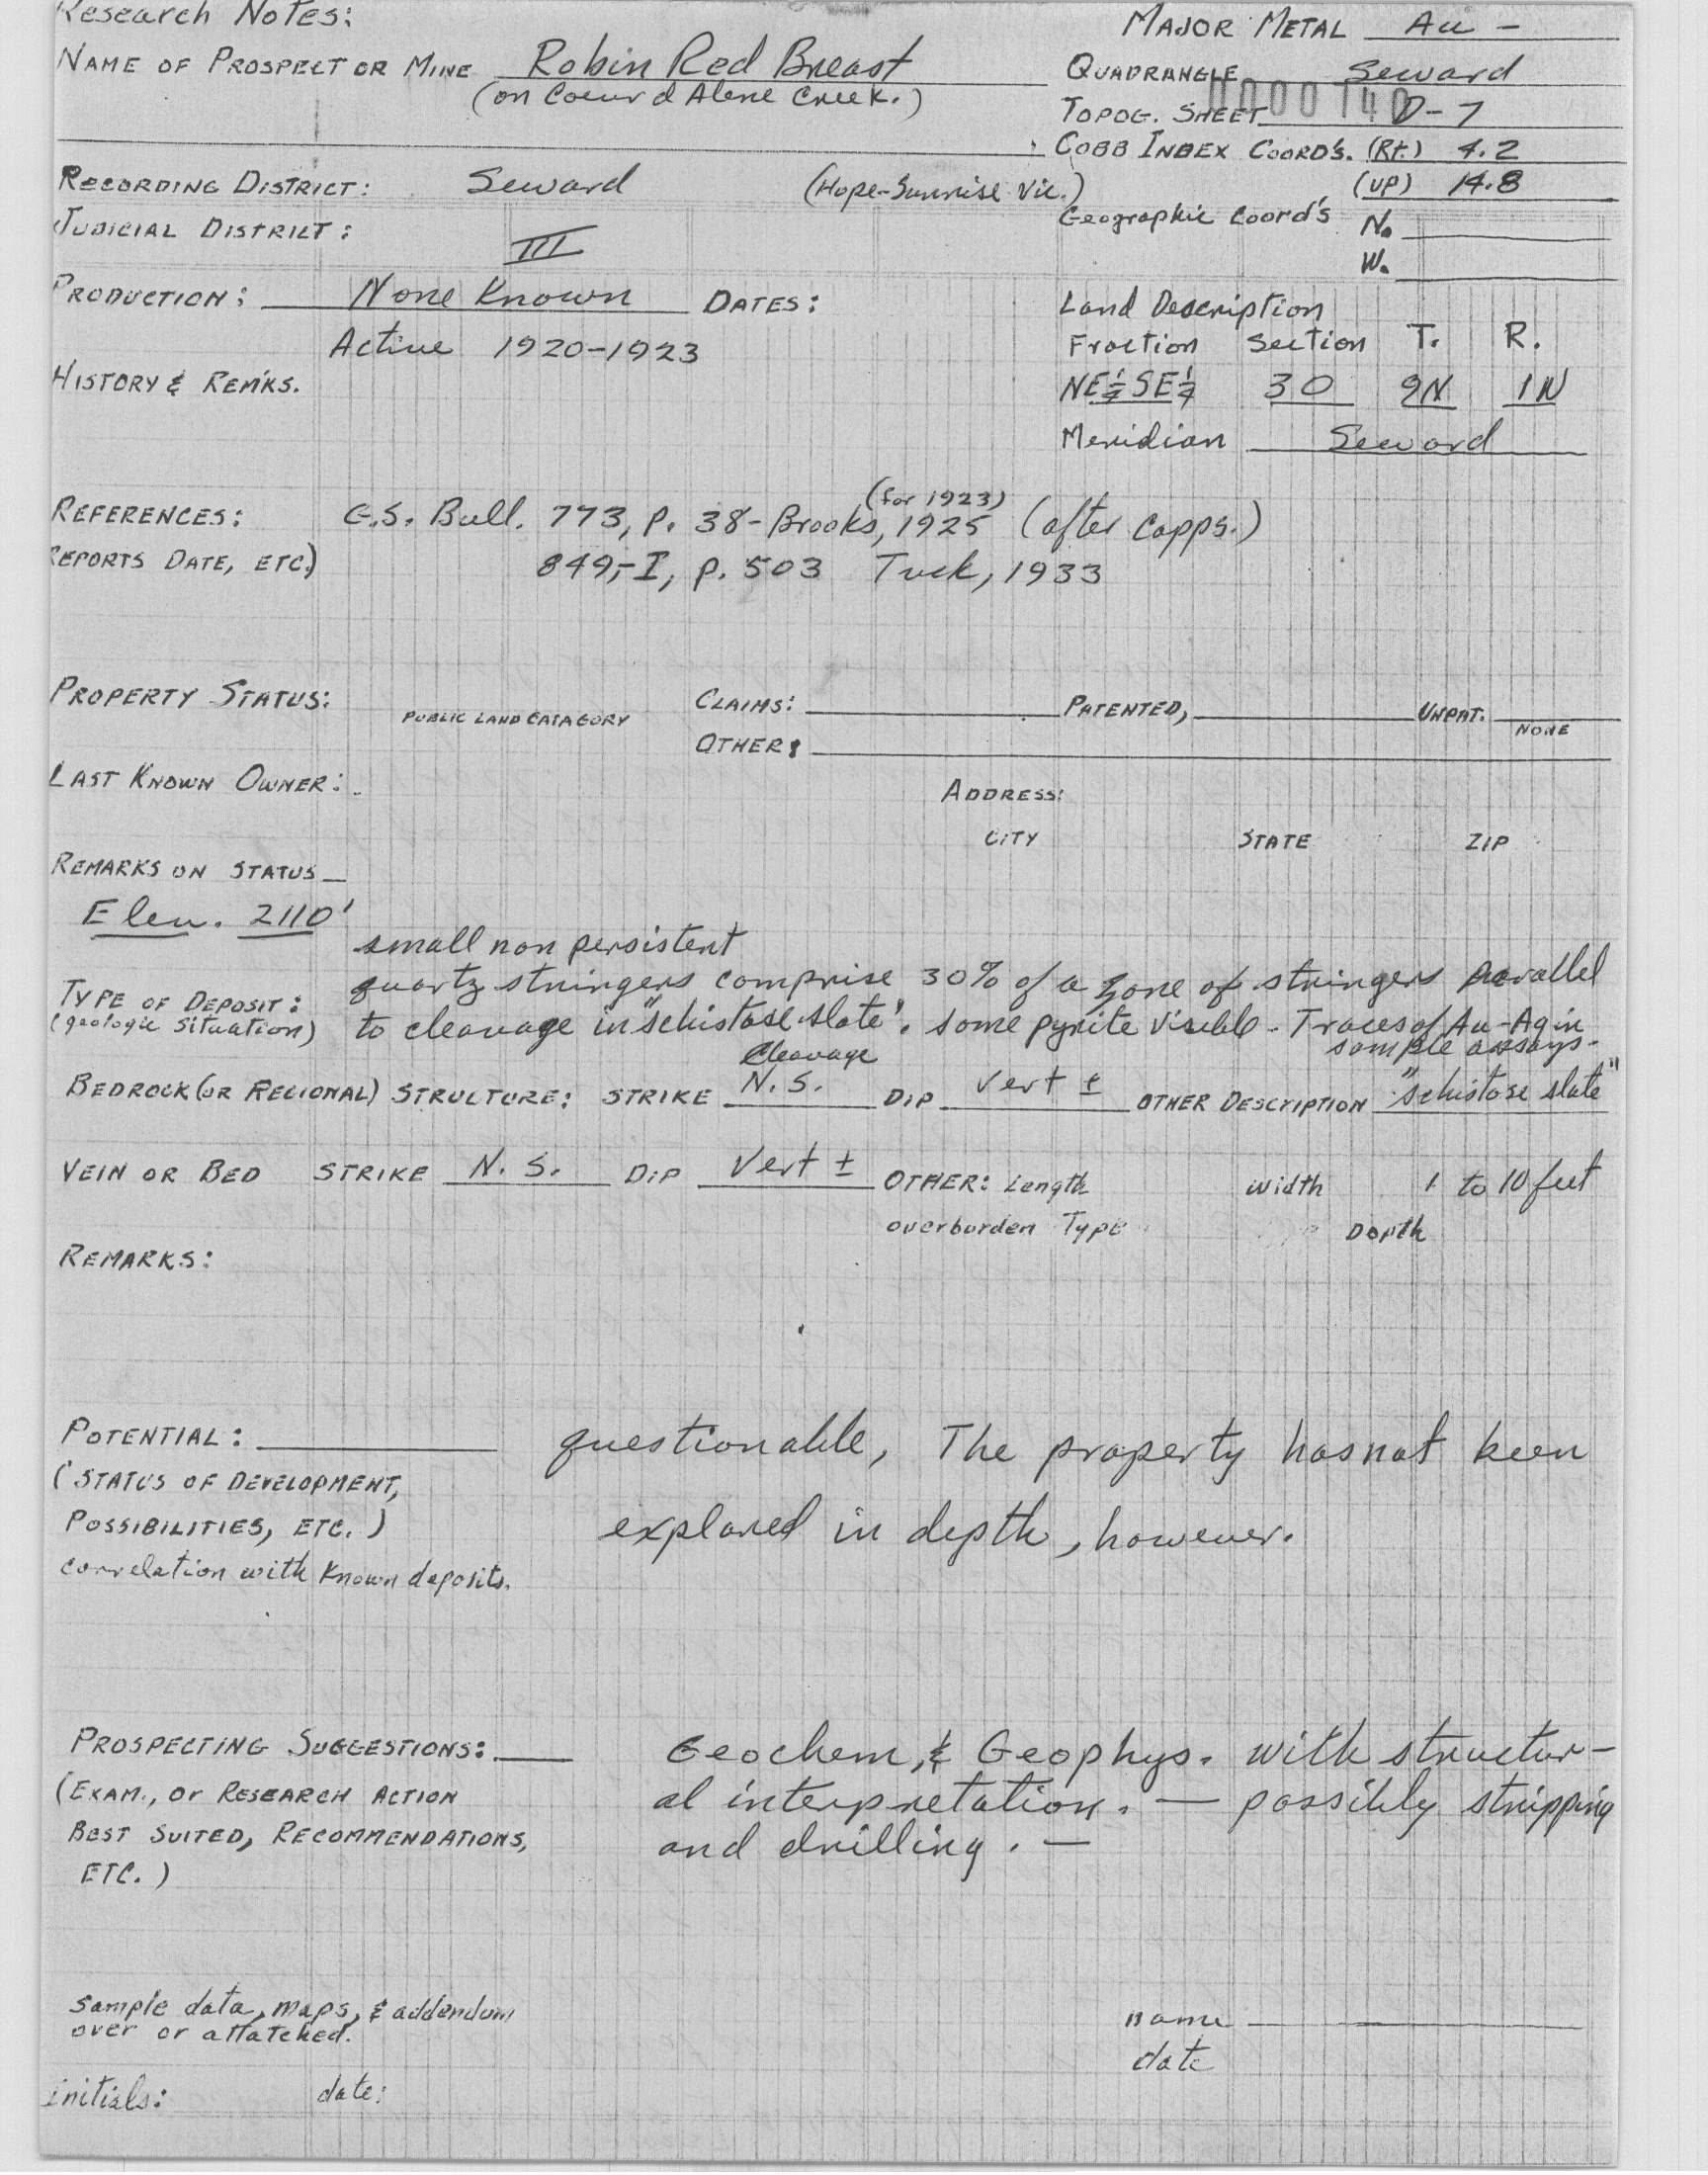 Research Notes:
MAJOR METAL Au -
NAME OF PROSPECT OR MINE Robin Red Breast
(on Coeur d Alene Creek.)
QUADRANGLE Seward
0000140
TOPOG. SHEET D-7
COBB INDEX COORD'S. (Rt.) 4.2
(UP) 14.8
RECORDING DISTRICT: Seward (Hope-Sunrise Vic.)
Geographic Coord's N.
W.
JUDICIAL DISTRICT: III
PRODUCTION: None Known DATES:
Active 1920-1923
Land Description
Fraction Section T. R.
NE¼ SE¼ 30 9N 1N
Meridian Seward
HISTORY & REM'KS.
REFERENCES: G.S. Bull. 773, p. 38- Brooks, 1925 (after Capps.)
(for 1923)
REPORTS DATE, ETC.) 849,-I, p. 503 Tuck, 1933
PROPERTY STATUS: PUBLIC LAND CATAGORY CLAIMS: PATENTED, UNPAT.
NONE
OTHER:
LAST KNOWN OWNER:
ADDRESS:
CITY STATE ZIP
REMARKS ON STATUS
Elev. 2110'
small non persistent
TYPE OF DEPOSIT: quartz stringers comprise 30% of a zone of stringers parallel
(geologic situation) to cleavage in "schistose slate". some pyrite visible - Traces of Au-Ag in
sample assays-
Cleavage
BEDROCK (OR REGIONAL) STRUCTURE: STRIKE N.S. DIP Vert ± OTHER DESCRIPTION "schistose slate"
VEIN OR BED STRIKE N.S. DIP Vert ± OTHER: Length width 1 to 10 feet
overburden Type Depth
REMARKS:
POTENTIAL: questionable, The property has not been
(STATUS OF DEVELOPMENT,
POSSIBILITIES, ETC.) explored in depth, however.
correlation with known deposits.
PROSPECTING SUGGESTIONS: Geochem, & Geophys. with structur-
(EXAM., or RESEARCH ACTION al interpretation. — possibly stripping
BEST SUITED, RECOMMENDATIONS, and drilling. —
ETC.)
sample data, maps, & addendum
over or attatched.
name
date
initials: date: